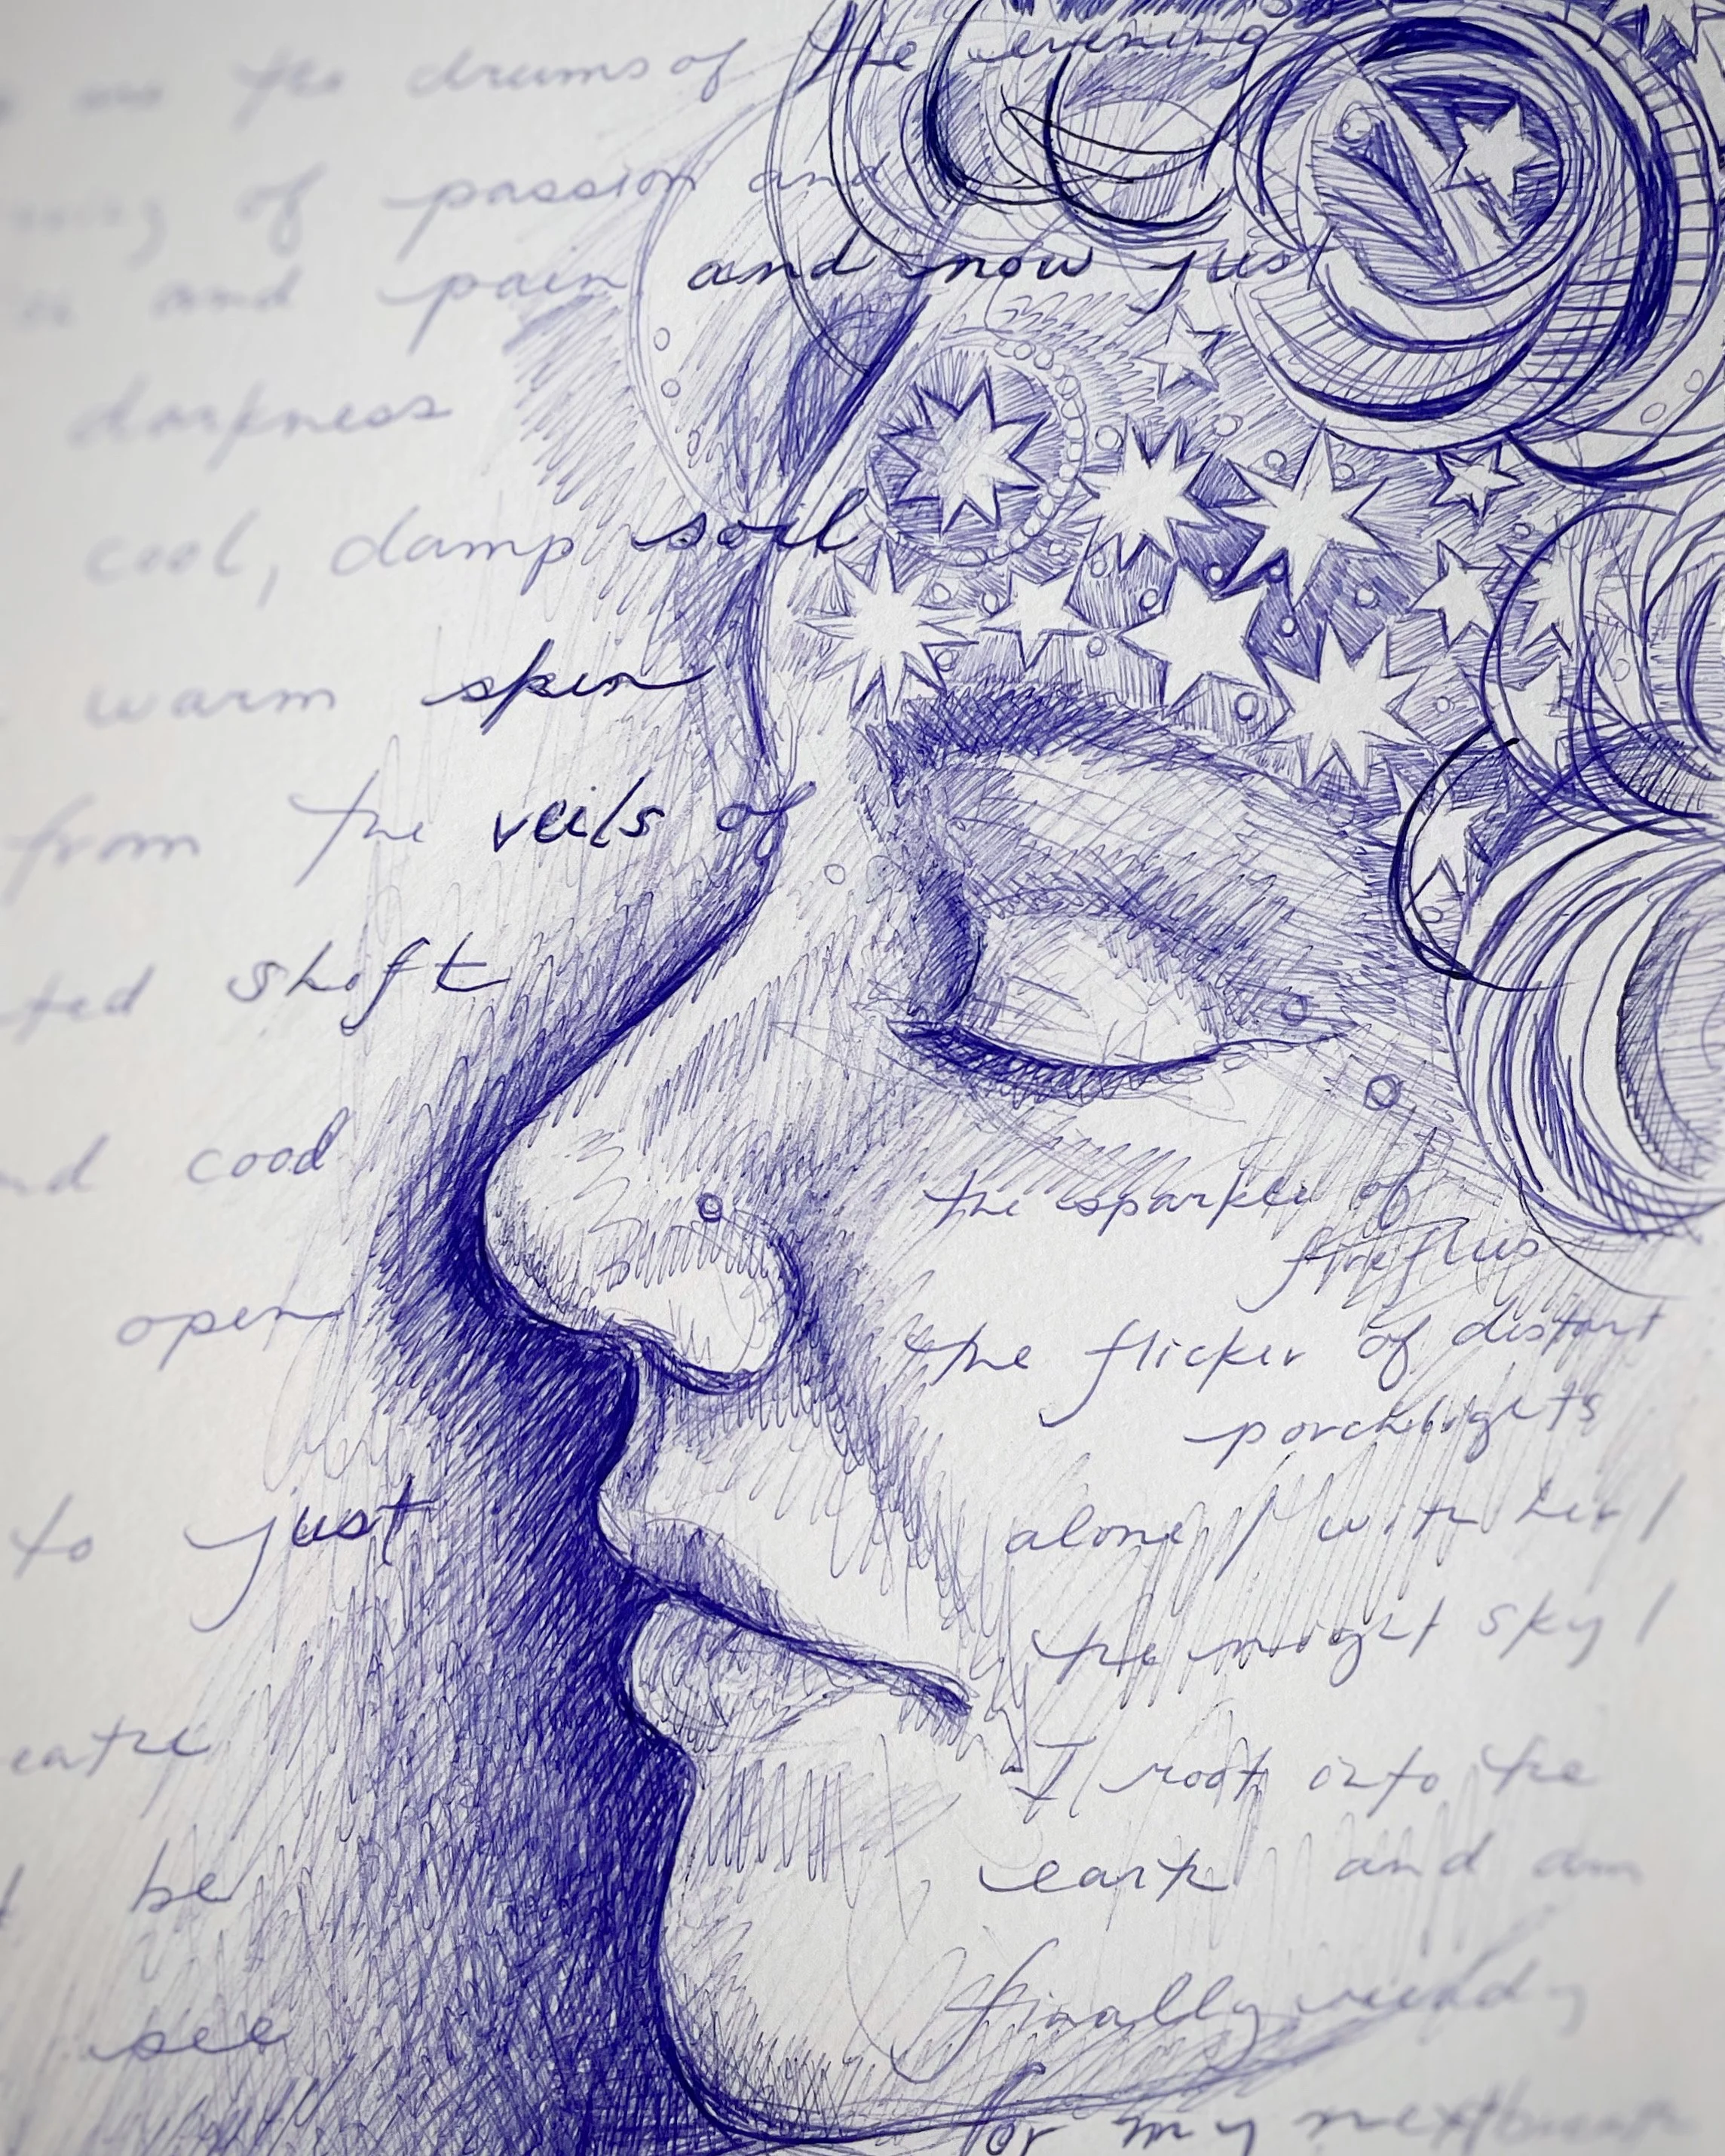 the drums of the evening
of passion and
and pain and now just
darkness
cool, damp soil
warm skin
from the veils of
shift
cood
the sparkle of
fireflies
open
the flicker of distant
porchlights
to just
alone / with her /
the night sky /
I root into the
be
earth and am
finally ready
see
for my next